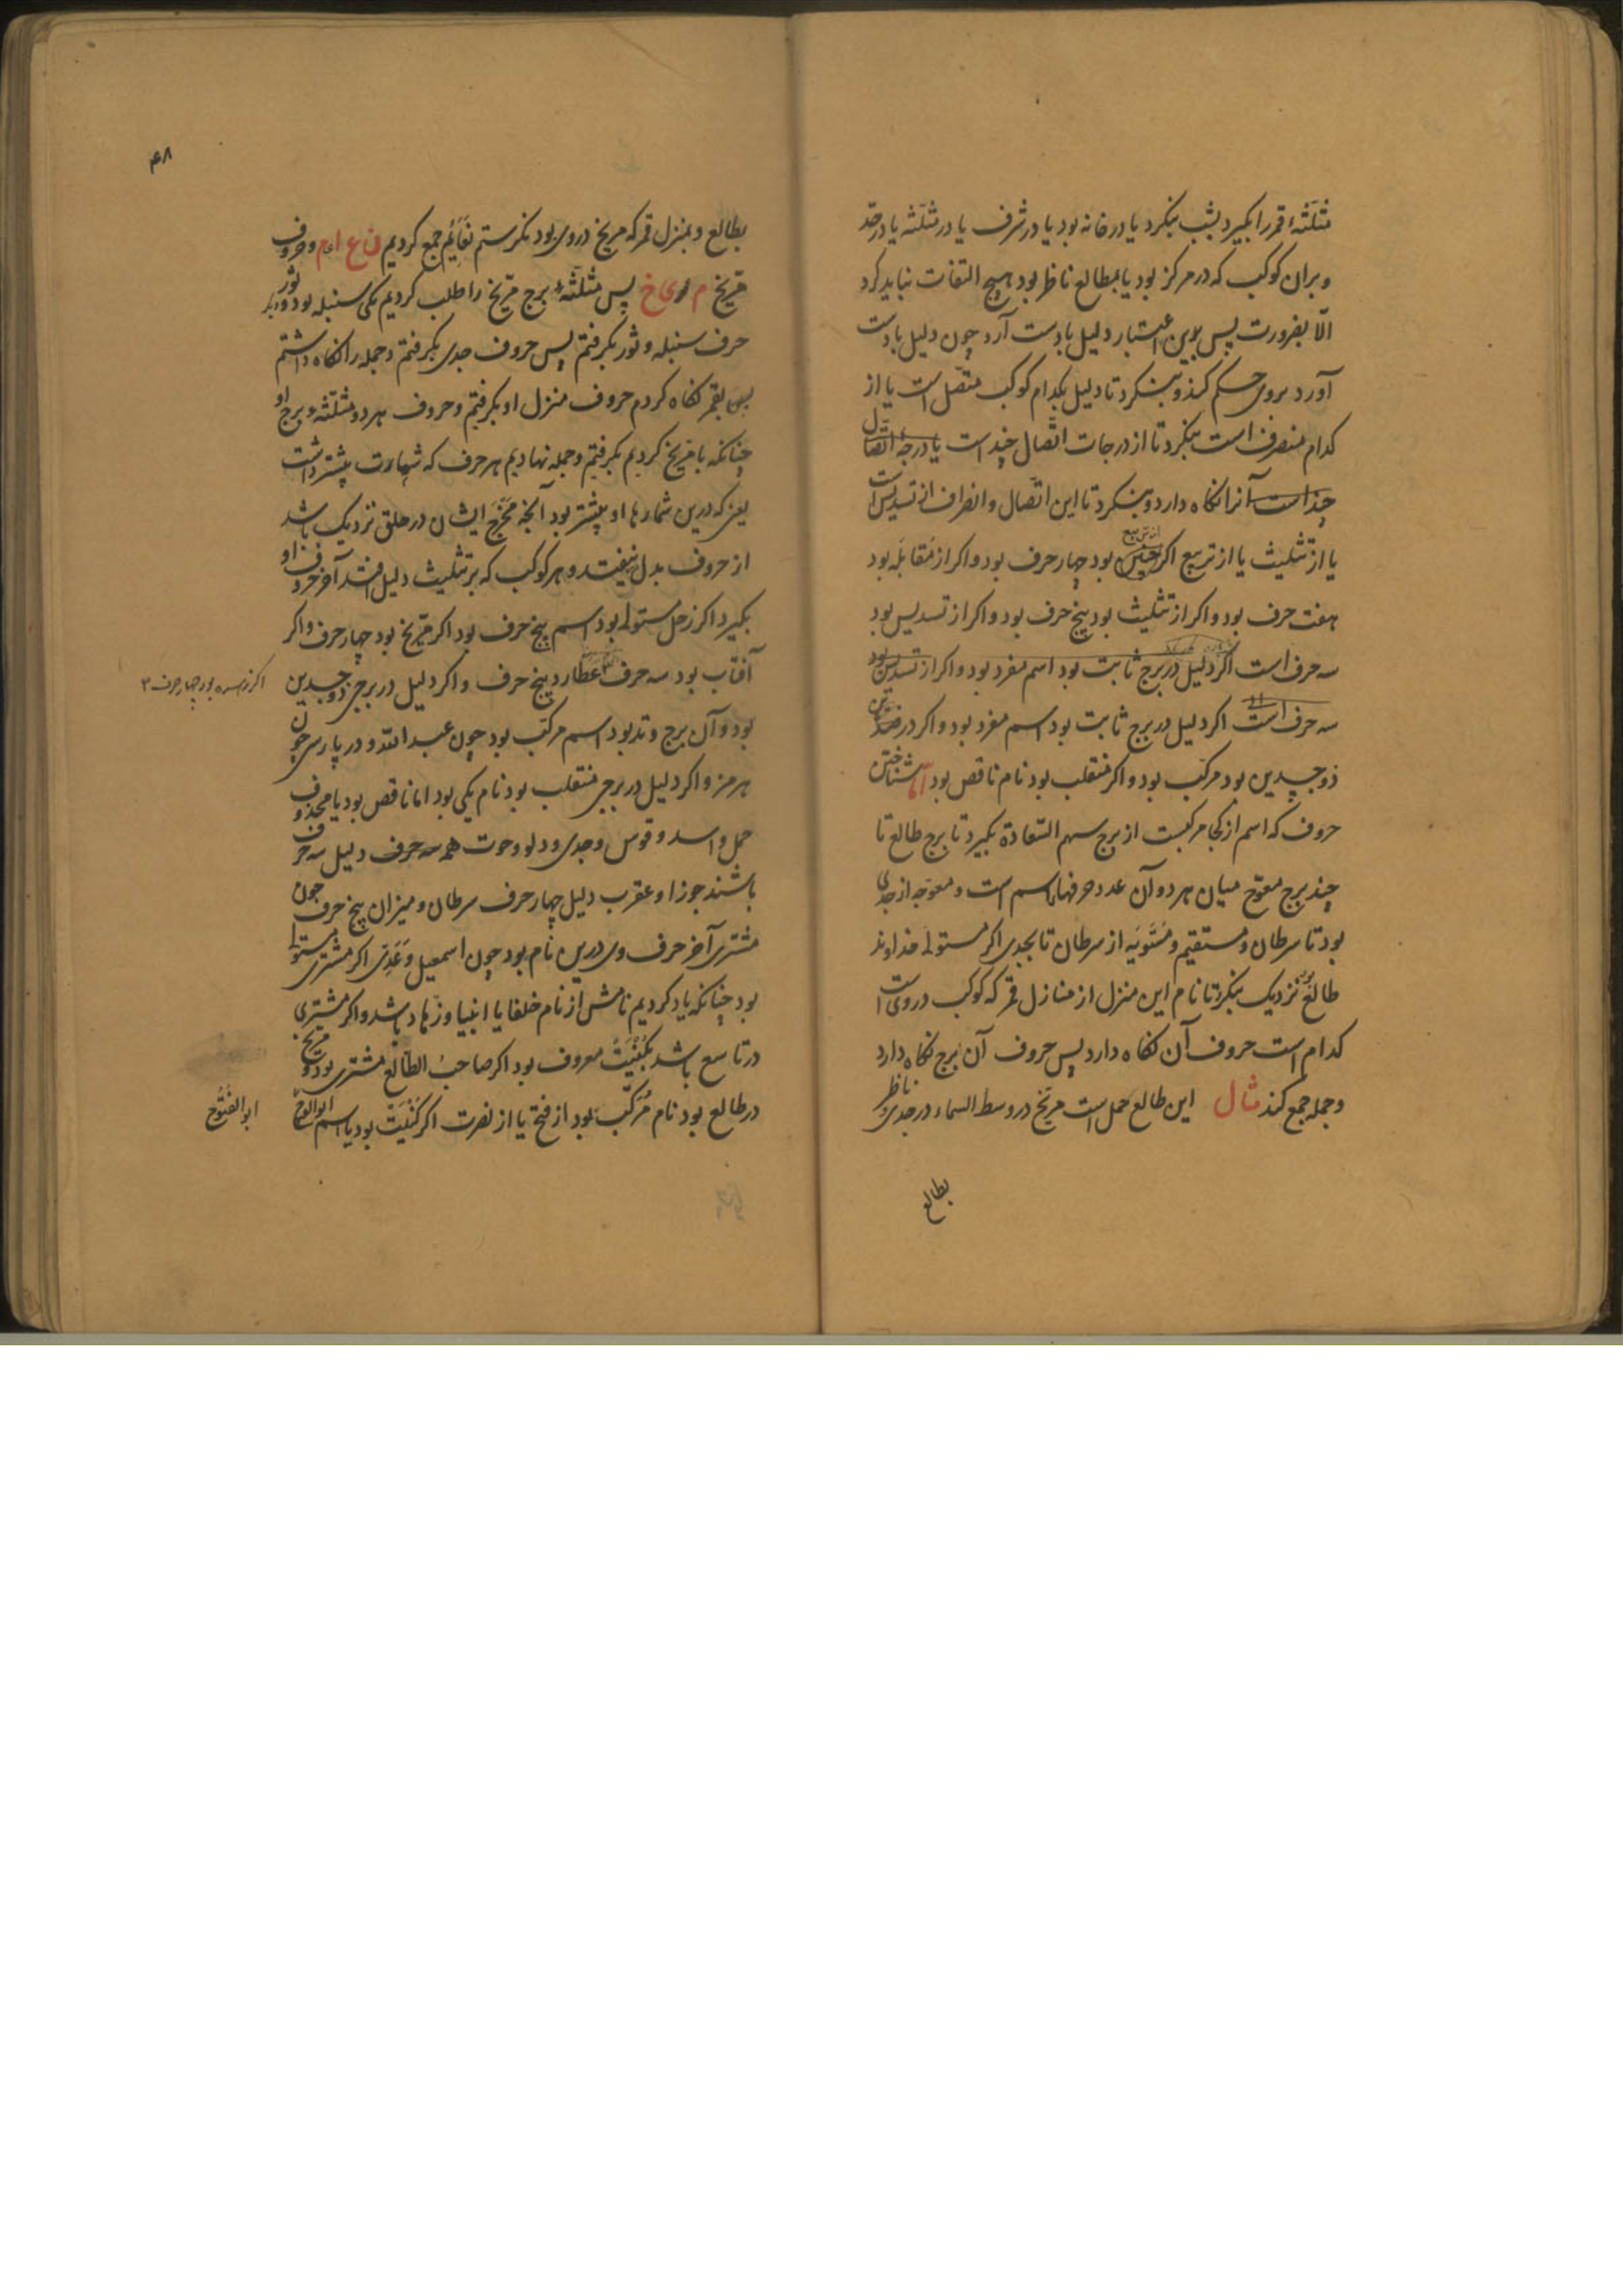 مثلثهٔ قمر را بگیرد بشب بنکرد یا در خانه بود یا در شرف یا در مثلثه یا در حد
و بران کوکب که در مرکز بود یا بمطالع ناظر بود هیچ التفات نباید کرد
الّا بضرورت پس بدین اعتبار دلیل بادست آرد چون دلیل بادست
آورد بروی حکم کند و بنکرد تا دلیل بکدام کوکب متّصل است یا از
کدام منصرف است بنکرد تا از درجات اتّصال چند است یا درجهٔ اتصال
چند است آنرا نکاه دارد و بنکرد تا این اتّصال و انصراف از تسدیس است
یا از تثلیث یا از تربیع اکر چنین بود چهار حرف بود و اکر از مقابله بود
هفت حرف بود و اکر از تثلیث بود پنج حرف بود و اکر از تسدیس بود
سه حرف است اکر دلیل در برج ثابت بود اسم مفرد بود و اکر از تسدیس بود
سه حرف است اکر دلیل در برج ثابت بود اسم مفرد بود و اکر در
ذو جسدین بود مرکّب بود و اکر منقلب بود نام ناقص بود اما شناختن
حروف که اسم از کجا مرکبست از برج سهم السّعادة بکیرد تا برج طالع تا
چند برج معوّج میان هر دو آن عدد حرفهاء اسم است و معوّجه از جدی
بود تا سرطان و مستقیم و مستویه از سرطان تا بجدی اکر مستولی خداوند
طالع بود نزدیک بنکرد تا نام این منزل از منازل قمر که کوکب در وی است
کدام است حروف آن نکاه دارد پس حروف آن برج نکاه دارد
و جمله جمع کند مثال این طالع حمل است مرّیخ در وسط السماء در جدی و ناظر
بطالع
۴۸
بطالع و بمنزل قمر که مریخ در وی بود نکرستم نعایم جمع کردیم ن ع ا ی م و حروف
مرّیخ م ر ی خ پس مثلثهٔ برج مرّیخ را طلب کردیم یکی سنبله بود و ثور
حرف سنبله و ثور بکرفتم پس حروف جدی بکرفتم و جمله را نکاه داشتم
پس بقمر نکاه کردم حروف منزل او بکرفتم و حروف هر دو مثلّثه و برج او
چنانکه با مرّیخ کردیم بکرفتم و جمله نهادیم هر حرف که شهادت بیشتر داشت
یعنی که درین شمارها او بیشتر بود آنچه مخرج ایشان در حلق نزدیک باشد
از حروف بدل بیفتد و هر کوکب که بر تثلیث دلیل افتد آخر حروف او
بکیرد اکر زحل مستولی بود اسم پنج حرف بود اکر مرّیخ بود چهار حرف و اکر
آفتاب بود سه حرف عطارد پنج حرف و اکر دلیل در برجی ذو جسدین
اکر زهره بود چهار حرف ۳
بود و آن برج وتد بود اسم مرکّب بود چون عبد اللّه و در پارسی چون
هرمز و اکر دلیل در برجی منقلب بود نام یکی بود اما ناقص بود یا محذوف
حمل و اسد و قوس و جدی و دلو و حوت همه سه حرف دلیل سه حرف
باشند جوزا و عقرب دلیل چهار حرف سرطان و میزان پنج حرف چون
مشتری آخر حرف وی درین نام بود چون اسمعیل و عدی اکر مشتری مستولی
بود چنانکه یاد کردیم نامش از نام خلفا یا انبیا و زهاد باشد و اکر مشتری
در تاسع باشد بکنیت معروف بود اکر صاحب الطالع مشتری بود و مریخ
در طالع بود نام مرکّب بود از فتح یا از نصرت اکر کنیت بود یا اسم ابو الفتوح
ابو الفتوح